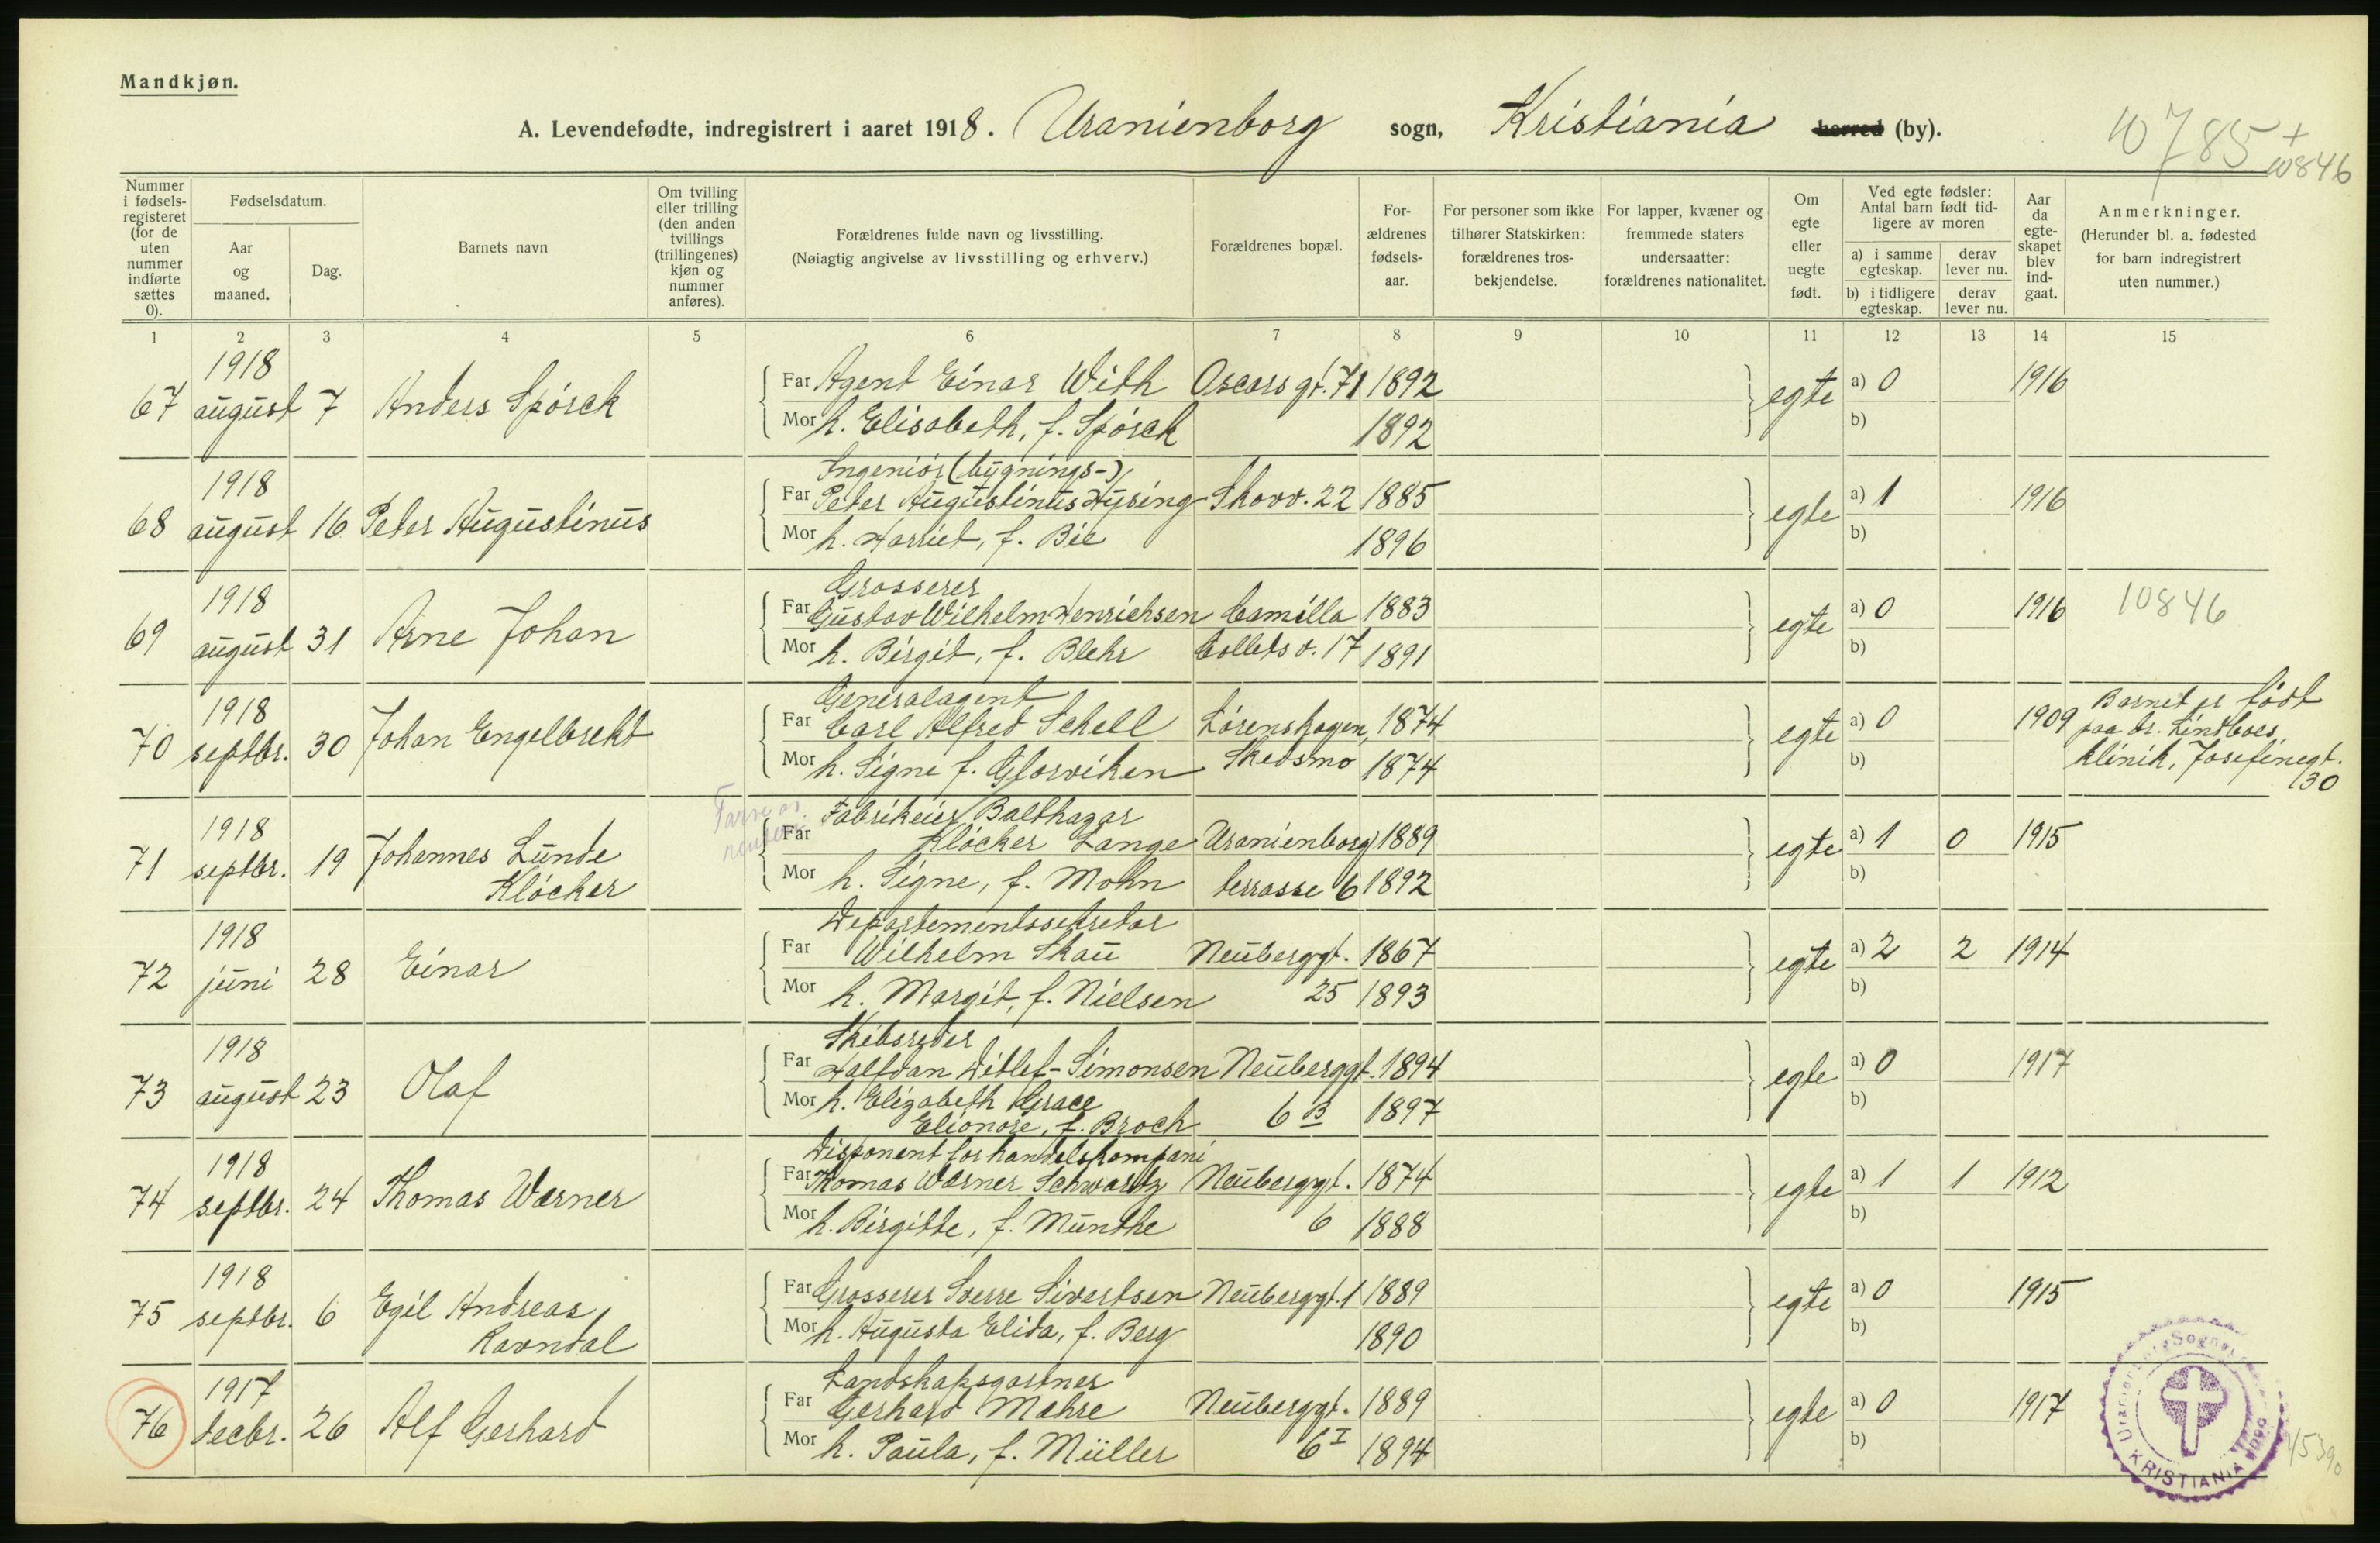 Mandkjøn.
A. Levendefødte, indregistrert i aaret 1918. Uranienborg sogn, Kristiania herred (by).
10785 + 10846
Nummer i fødsels-registeret (for de uten nummer indførte sættes 0).
Fødselsdatum.
Aar og maaned.
Dag.
Barnets navn
Om tvilling eller trilling (den anden tvillings (trillingenes) kjøn og nummer anføres).
Forældrenes fulde navn og livsstilling.
(Nøiagtig angivelse av livsstilling og erhverv.)
Forældrenes bopæl.
For-ældrenes fødsels-aar.
For personer som ikke tilhører Statskirken: forældrenes tros-bekjendelse.
For lapper, kvæner og fremmede staters undersaatter: forældrenes nationalitet.
Om egte eller uegte født.
Ved egte fødsler: Antal barn født tid-ligere av moren
a) i samme egteskap.
derav lever nu.
b) i tidligere egteskap.
derav lever nu.
Aar da egte-skapet blev ind-gaat.
Anmerkninger.
(Herunder bl. a. fødested for barn indregistrert uten nummer.)
1 2 3 4 5 6 7 8 9 10 11 12 13 14 15
1918
67 august 7 Anders Spörck Far Agent Einar With Oscars gt. 71 1892 egte a) 0 1916
Mor h. Elisabeth, f. Spörck 1892 b)
1918 Ingeniör (bygnings-)
68 august 16 Peter Augustinus Far Peter Augustinus Hysing Skovv. 22 1885 egte a) 1 1916
Mor h. Harriet, f. Bie 1896 b)
1918 Grosserer
69 august 31 Arne Johan Far Gustav Wilhelm Henrichsen Camilla 1883 egte a) 0 1916 10846
Mor h. Birgit, f. Blehr Colletsv. 17 1891 b)
1918 Generalagent
70 septbr. 30 Johan Engelbreht Far Carl Alfred Schell Lörenskogen, 1874 egte a) 0 1909 Barnet er födt
paa dr. Lindboes
Mor h. Signe f. Glorviken Skedsmo 1874 b) klinik, Josefinegt.
30
1918 Fabrikeier Balthazar
71 septbr. 19 Johannes Lunde Far Klöcker Lange Uranienborg 1889 egte a) 1 0 1915
Klöcker Mor h. Signe, f. Mohn terrasse 6 1892 b)
1918 Departementssekretær
72 juni 28 Einar Far Wilhelm Skau Neuberggt. 1867 egte a) 2 2 1914
Mor h. Margit, f. Nielsen 25 1893 b)
1918 Skibsreder
73 august 23 Olaf Far Halfdan Ditlef-Simonsen Neuberggt. 1894 egte a) 0 1917
Mor h. Elizabeth Grace
Elionore, f. Broch 6 B 1897 b)
1918 Disponent for handelskompani
74 septbr. 24 Thomas Wærner Far Thomas Wærner Schwartz Neuberggt. 1874 egte a) 1 1 1912
Mor h. Birgitte, f. Munthe 6 1888 b)
1918
75 septbr. 6 Egil Andreas Far Grosserer Sverre Sivertsen Neuberggt. 1 1889 egte a) 0 1915
Ravndal Mor h. Augusta Elida, f. Berg 1890 b)
1917 Landskapsgartner
76 decbr. 26 Alf Gerhard Far Gerhard Mæhre Neuberggt. 1889 egte a) 0 1917
Mor h. Paula, f. Müller 6 I 1894 b)
KRISTIANIA